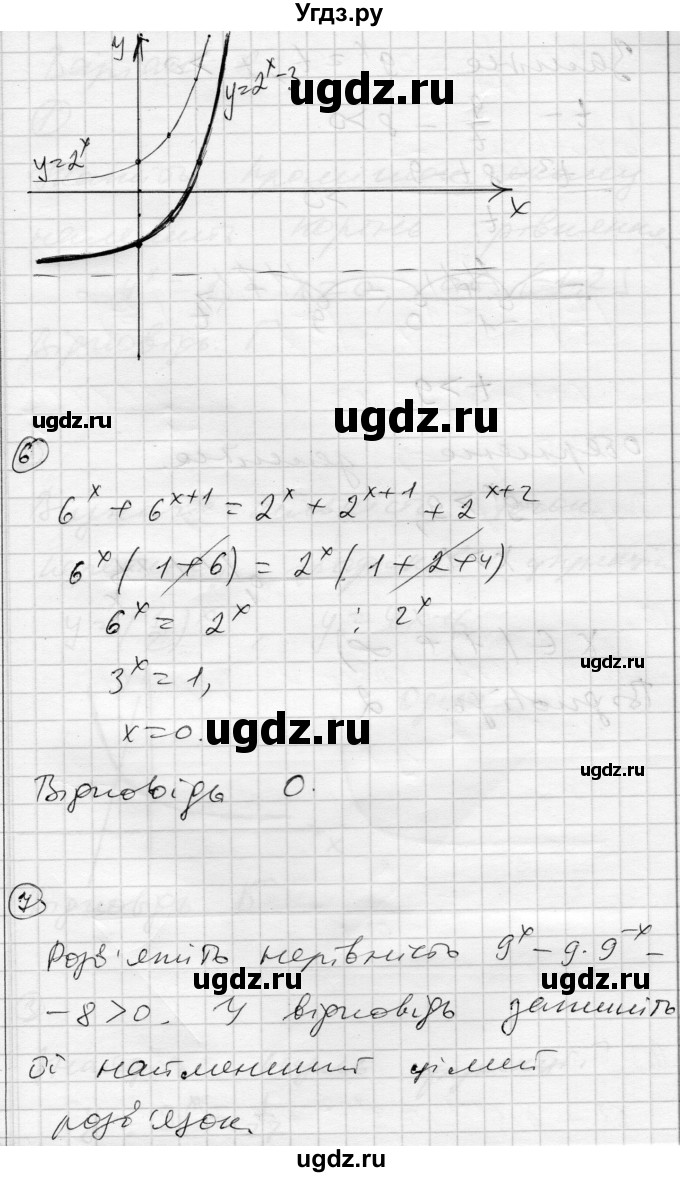 Угдз.ру
y
y=2^x-3
ugdz.ru
y=2^x
x
ugdz.ru
ugdz.ru
6
6^x + 6^{x+1} = 2^x + 2^{x+1} + 2^{x+2}
6^x (1+6) = 2^x (1+2+4)
6^x = 2^x : 2^x
ugdz.ru
3^x = 1,
x=0.
ugdz.ru
ugdz.ru
Відповідь 0.
7
Розв'яжіть нерівність 9^x - 9·9^{-x} -
ugdz.ru
ugdz.ru
- 8 > 0. У відповідь запишіть
її найменший цілий
розв'язок.
ugdz.ru